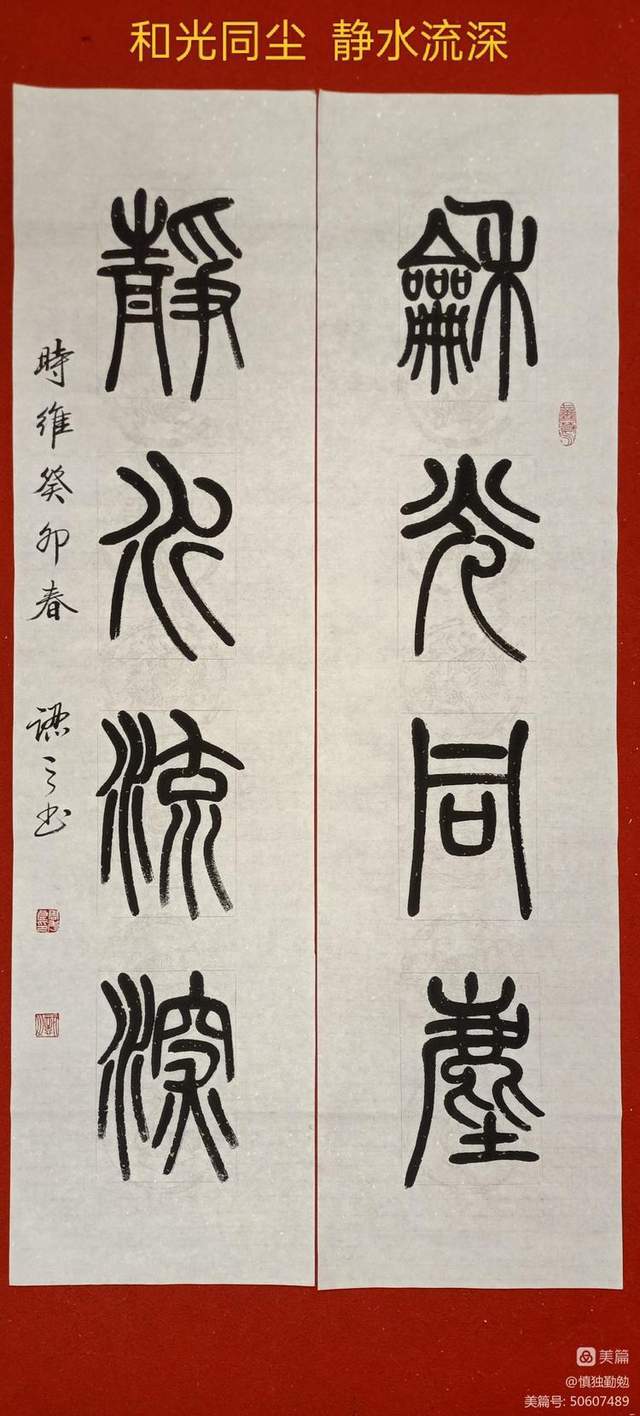 和光同尘 静水流深
龢光同塵
靜水流深
時維癸卯春
书
美篇
@慎独勤勉
美篇号: 50607489